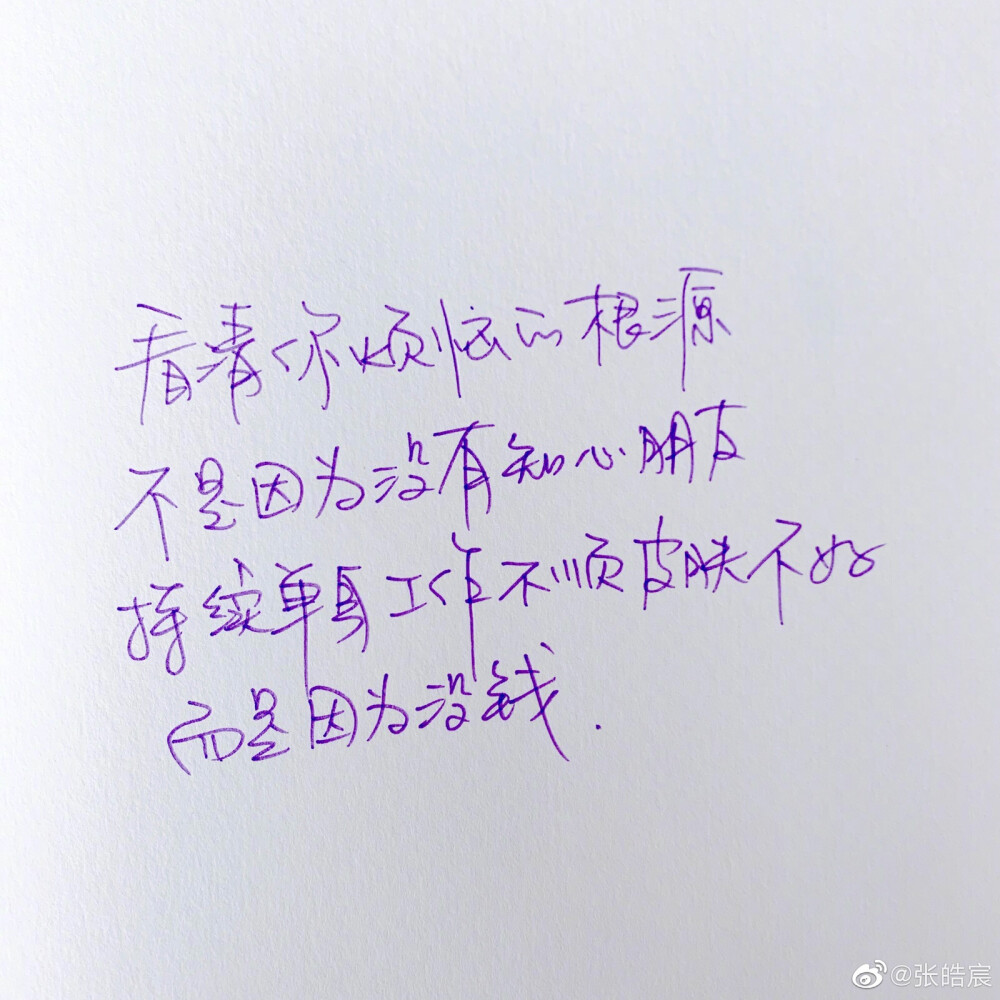 看清你烦恼的根源
不是因为没有知心朋友
持续单身工作不顺皮肤不好
而是因为没钱.
@张皓宸